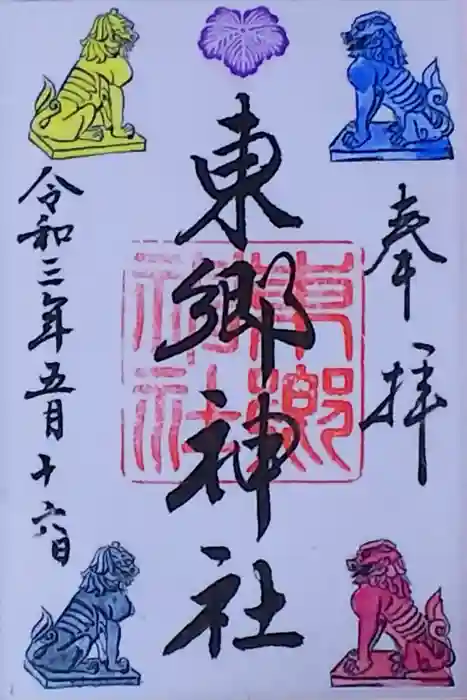 奉拝
東郷神社
東郷神社
令和三年五月十六日